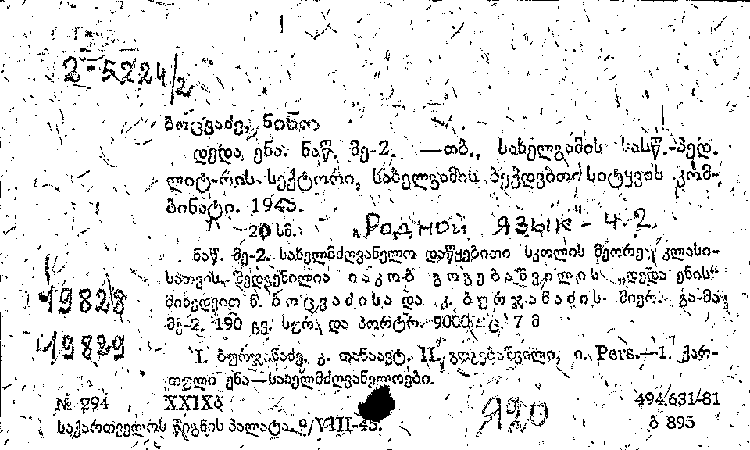 2-5224/2
ბოცვაძე, ნინო
დედა ენა. ნაწ. მე-2. —თბ., სახელგამის სასწ.-პედ.
ლიტ-რის სექტორი, სახელგამის ბეჭდვითი სიტყვის კომ-
ბინატი. 1945.
20 სმ. „Родной язык" - ч. 2
ნაწ. მე-2. სახელმძღვანელო დაწყებითი სკოლის მეორე კლასი-
სათვის. შედგენილია იაკობ გოგებაშვილის „დედა ენის"
მიხედვით ნ. ბოცვაძისა და კ. ბურჯანაძის მიერ.
მე-2. 190 გვ. სურ. და პორტრ. 9000 ც. 7 მ
I. ბურჯანაძე, კ. თანაავტ. II. გოგებაშვილი, ი. Pers.—1. ქარ-
თული ენა—სახელმძღვანელოები.
19828
19829
№ 294 XXIXბ 494.631/81
საქართველოს წიგნის პალატა. 9/VIII-45. Я20 ბ 895